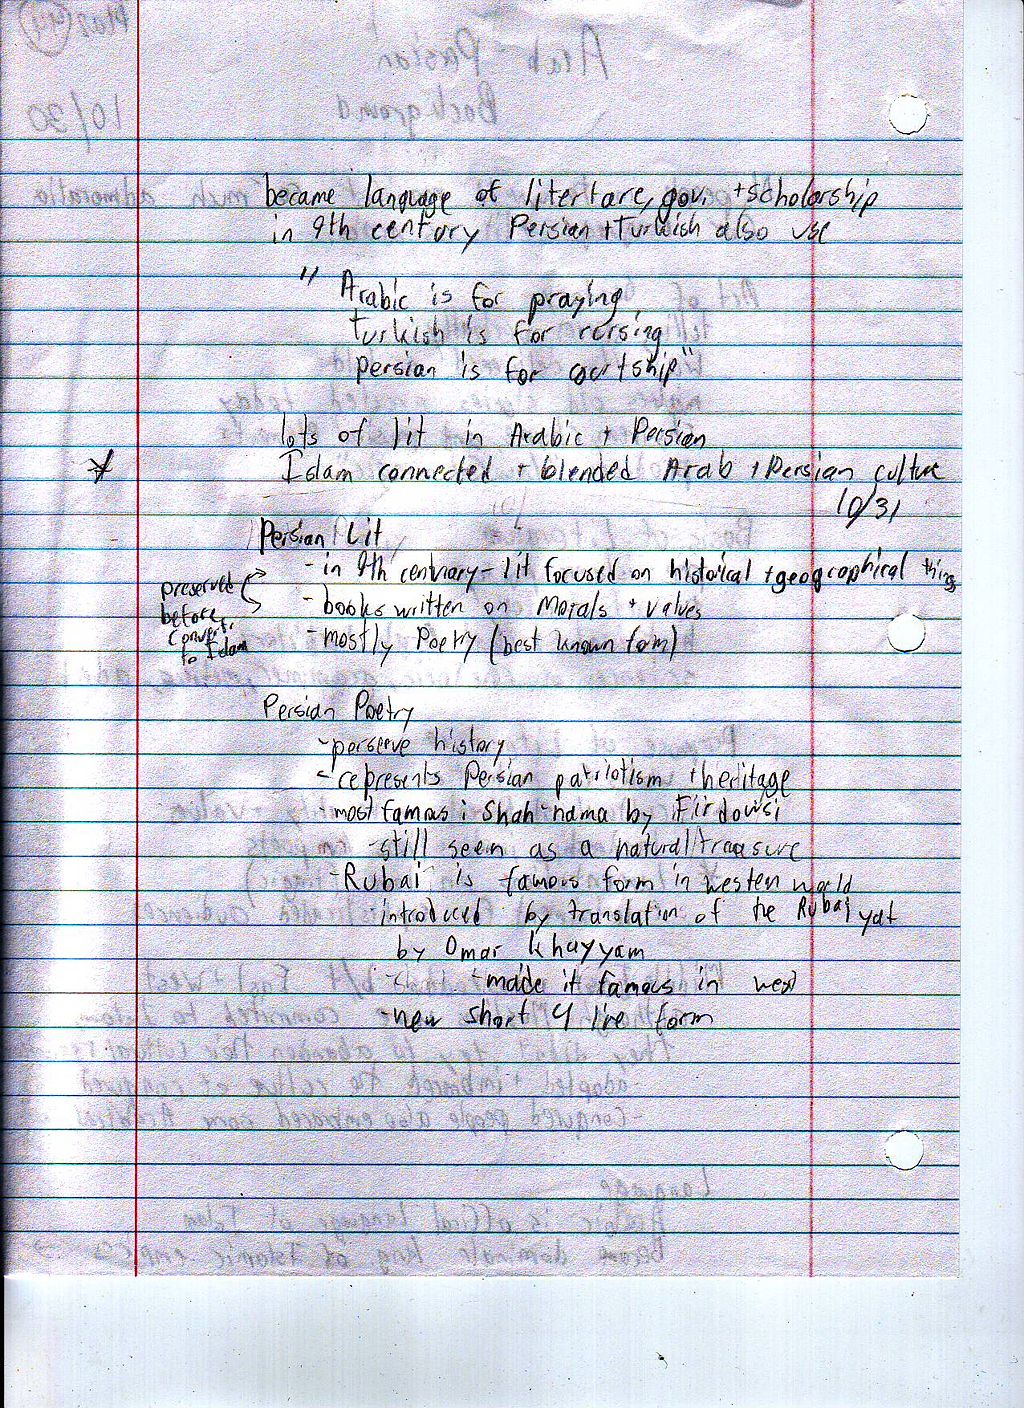 became language of litertare, gov. + scholorship
in 9th century Persian + Turkish also use
" Arabic is for praying
turkish is for cursing
persian is for courtship"
lots of lit in Arabic + Persian
Islam connected + blended Arab + Persian culture
10/31
Persian Lit
- in 9th centurary - lit focused on historical + geographical things
- books written on Morals + values
- mostly Poetry (best known form)
preserved
before
convert.
to Islam
Persian Poetry
- perserve history
- represents Persian patriotism + heritage
most famous: Shah-nama by Firdowsi
- still seen as a natural treasure
- Rubai is famous form in westen world
introduced by translation of the Rubaiyat
by Omar Khayyam
- made it famous in west
- new short 4 line form